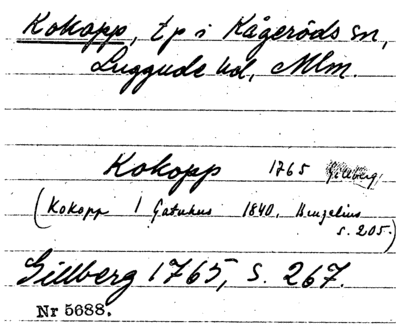 Kokopp, tp i Kågeröds sn,
Luggude hd, Mlm.
Kokopp 1765 Gillberg,
(Kokopp 1 Gatuhus 1840, Henzelius
s. 205.)
Gillberg 1765, s. 267.
Nr 5688.